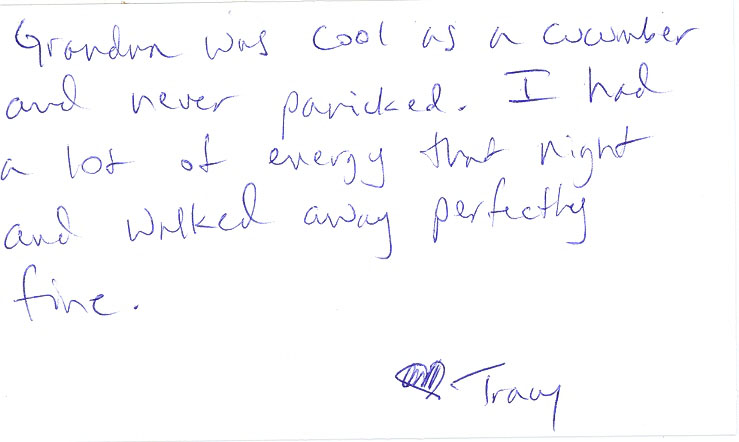 Grandma was cool as a cucumber
and never panicked. I had
a lot of energy that night
and walked away perfectly
fine.
-Tracy